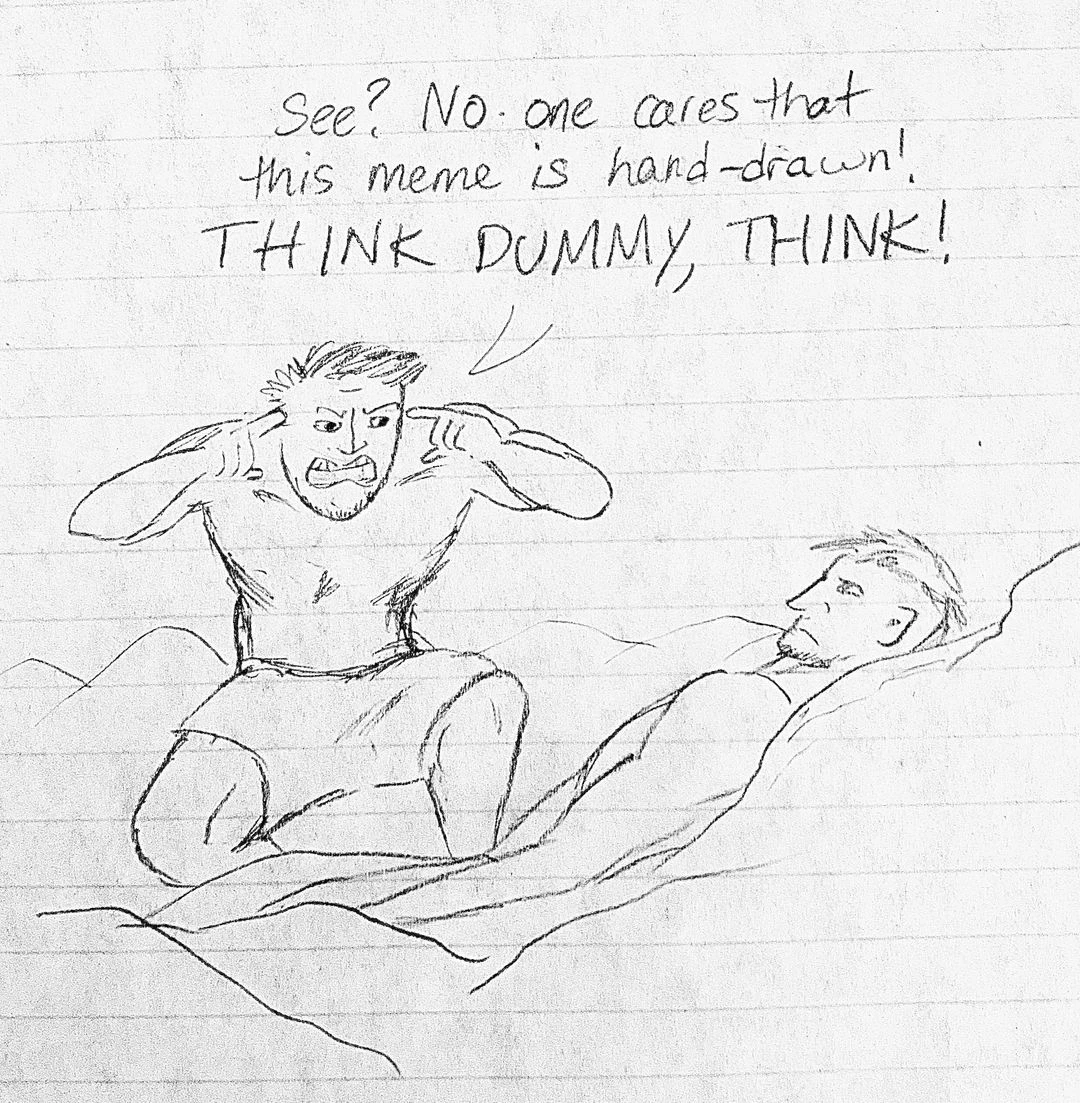 See? No one cares that
this meme is hand-drawn!
THINK DUMMY, THINK!